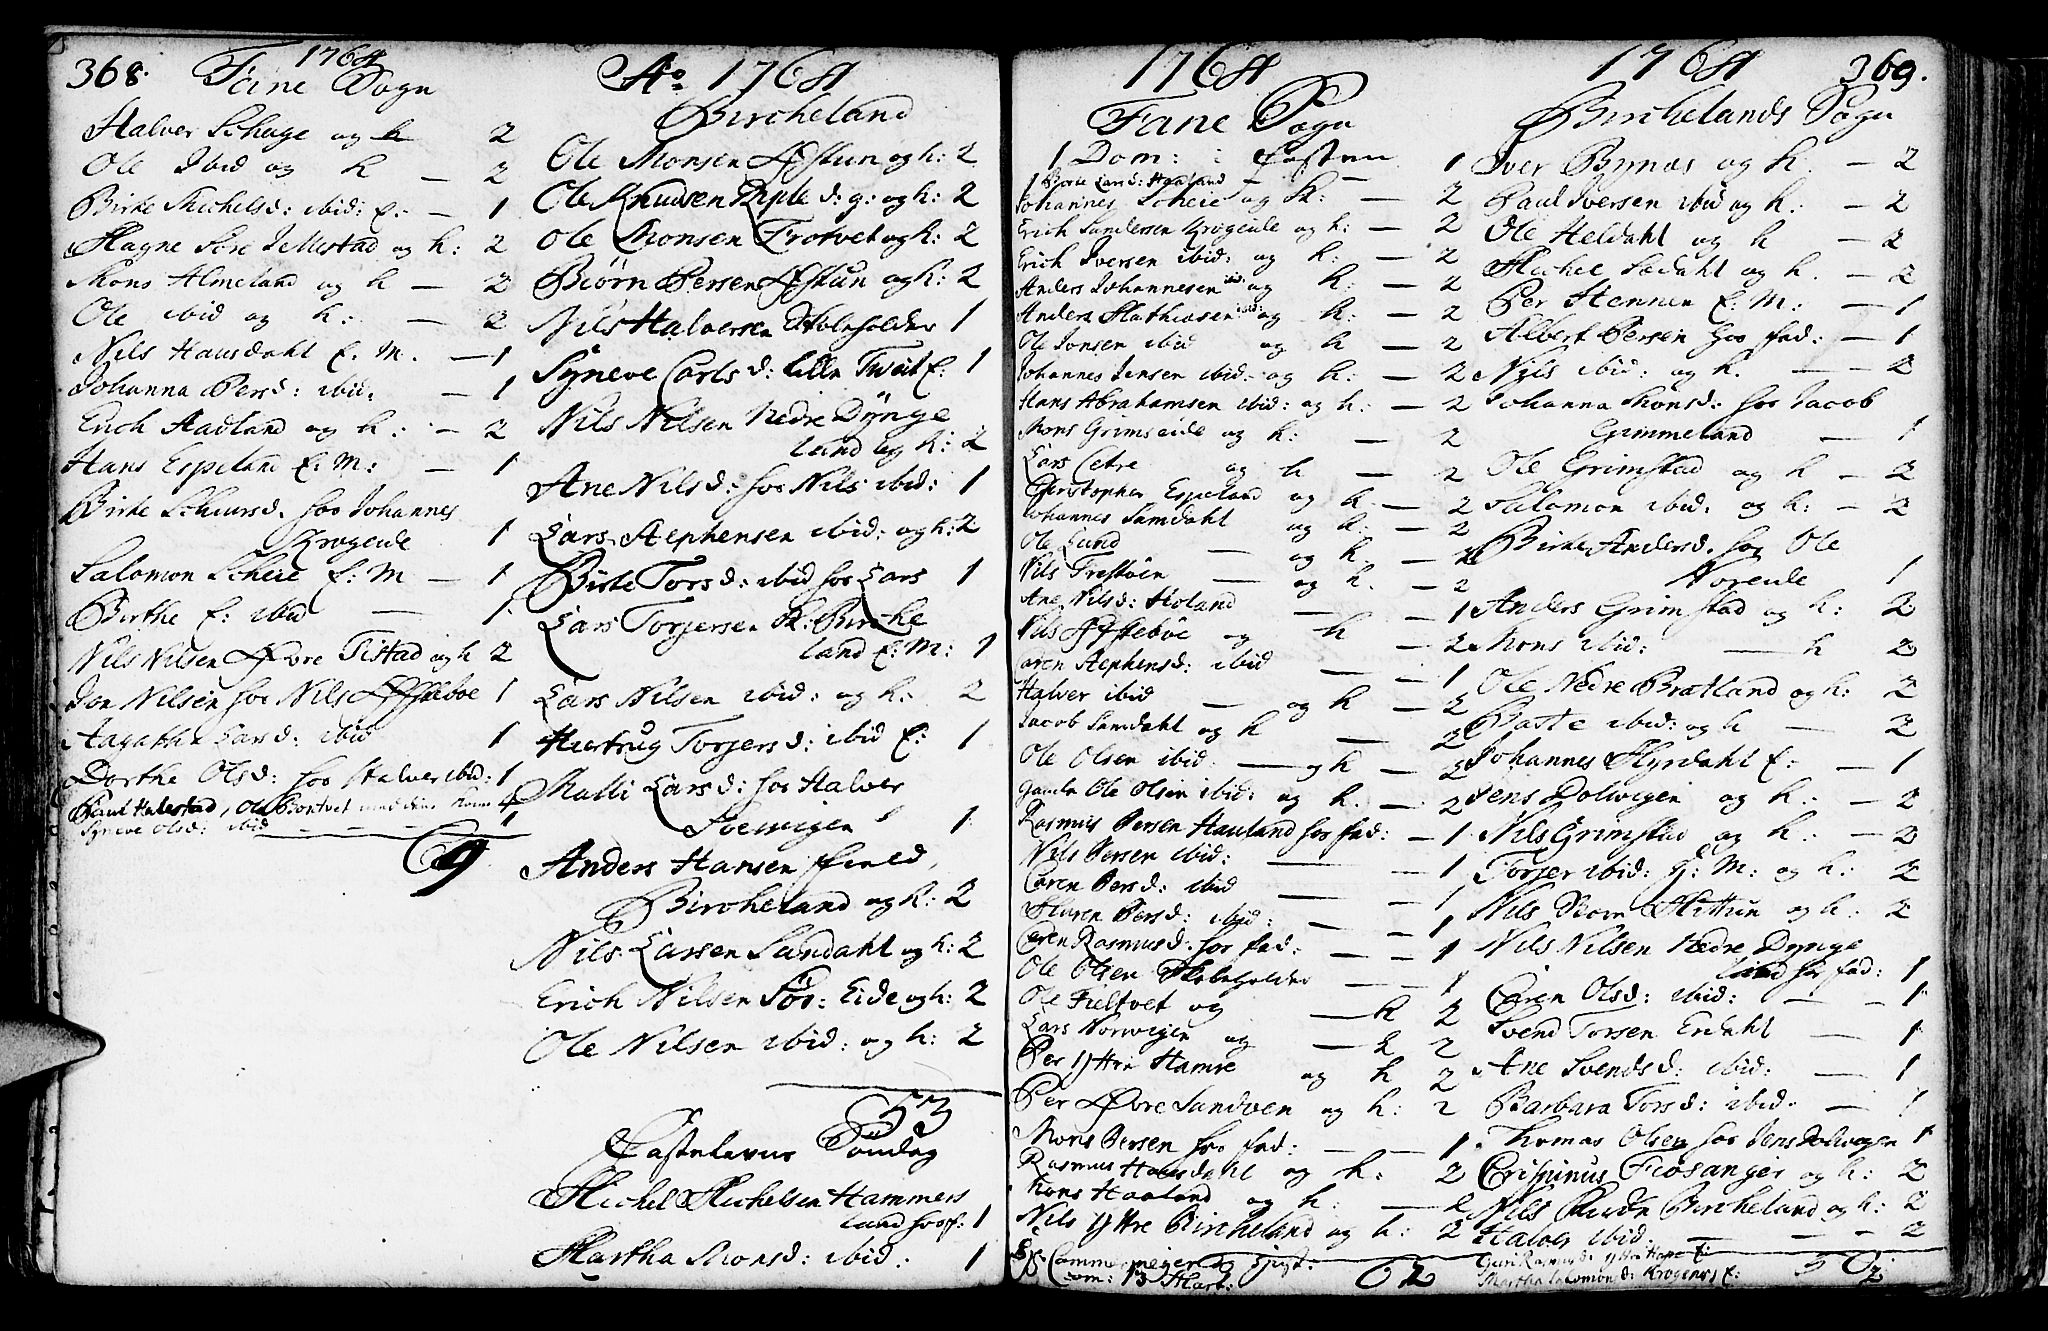 368.
1764
Fane Sogn
Halver Schage og h 2
Ole Ibid og h — 2
Birte Michelsd: ibid: E: — 1
Magne Søre Jellestad og h: 2
Mons Almeland og h — 2
Ole ibid og h: — 2
Nils Hausdahl E. M. — 1
Johanna Persd: ibid. — 1
Erich Aadland og h: — 2
Hans Espeland E: M: — 1
Birte Schiursd. hos Johannes
Krogeide 1
Salomon Scheie E: M — 1
Birthe E: ibid — 1
Nils Nilsen Øvre Tistad og h 2
Jon Nilsen hos Nils Østebøe 1
Aagatha Larsd: ibid 1
Dorthe Olsd: hos Halver ibid: 1
Paul Hatlestad, Ole Bontvet med deres Koner 4
Syneve Olsd: ibid — — — 1
69
Ao 1764
Bircheland
Ole Monsen Østun og h: 2
Ole Knudsen Riple d: g: og h: 2
Ole Monsen Trotvet og h: 2
Biørn Persen Østun og h: 2
Nils Halversen Skoleholder 1
Syneve Carlsd: Lille Tveit E: 1
Nils Nilsen Nedre Dynge
land og h: 2
Ane Nilsd: hos Nils ibid: 1
Lars Stephensen ibid: og h: 2
Birte Torsd: ibid hos Lars 1
Lars Torjersen R: Birche
land E: M: 1
Lars Nilsen ibid: og h: 2
Hiertrug Torjersd: ibid E: 1
Malli Larsd: hos Halver
Soelvigen 1
Anders Hansen Field,
Bircheland og h: 2
Nils Larsen Sandahl og h: 2
Erich Nilsen Sør: Eide og h: 2
Ole Nilsen ibid: og h: 2
53
Fastelavns Sondag
Michel Michelsen Hammers
land hos f: 1
Martha Monsd: ibid: 1
1764
Fane Sogn
1 Dom: i Fasten 1
1 Borte Larsd: Haaland — —
Johannes Scheie og h: — 2
Erich Sandersen Krogeide og h: — 2
Erich Iversen ibid: og h: — 2
Anders Johannesen ibid: og h: — 2
Anders Mathiasen ibid og h: — 2
Ole Jonsen ibid og h — 2
Johannes Jensen ibid: og h: — 2
Hans Abrahamsen ibid: og h: — 2
Mons Grimseide og h: — 2
Lars Cetre og h — 2
Christopher Espeland og h — 2
Johannes Samdahl og h: — 2
Ole Lund — og h — 2
Nils Trestøen — og h. — 2
Ane Nilsd: Holand — — 1
Nils Østebøe og h — 2
Caren Stephensd: ibid — — 1
Halver ibid — og h — 2
Jacob Samdahl og h — 2
Ole Olsen ibid: — og h — 2
Gamle Ole Olsen ibid: og h. — 2
Rasmus Persen Hauland hos fad: — 1
Nils Persen ibid: — — 1
Caren Persd: ibid — — 1
Maren Persd: ibid: — — 1
Caren Rasmusd: hos fad: — — 1
Ole Olsen Skoleholder — — 1
Ole Fieltvet og — h 2
Lars Norvigen og — h 2
Per Yttre Hamre og h 2
Per Øvre Sandven og h: 2
Mons Persen hos fad: — — 1
Rasmus Hausdahl og h: 2
Mons Haaland og h: — 2
Nils Yttre Bircheland og h: 2
62
com: 13 Mart:
1764
369.
Birchelands Sogn
Iver Bynæs og h. — 2
Paul Iversen ibid og h: — 2
Ole Heldahl og h — 2
Michel Sædahl og h. — 2
Per Hennen E. M: — 1
Albert Persen hos fad: — 1
Nils ibid: og h. — — 2
Johanna Monsd: hos Jacob
Grimmeland — 1
Ole Grimstad og h — 2
Salomon ibid: og h: — 2
Birte Andersd. hos Ole
Noreide 1
Anders Grimstad og h: 2
Mons ibid: — h 2
Ole Nedre Bratland og h: 2
Baste ibid: og h — 2
Johannes Myrdahl E: — 1
Jens Dolvigen og h: — 2
Nils Grimstad og h: — 2
Torjer ibid: G: M: og h: 2
Nils Storm Mittun og h: 2
Nils Nilsen Nedre Dynge
land hos fad: 1
Caren Olsd: ibid: — — 1
Svend Torsen Erdahl — 1
Ane Svendsd: ibid: — 1
Barbara Torsd: ibid: — 1
Thomas Olsen hos Jens Dolvigen 1
Crispinus Fiøsanger og h: 2
Nils Bircheland og h: 2
Halver ibid: — — 2
Martha Salomonsd: Krogenes E: